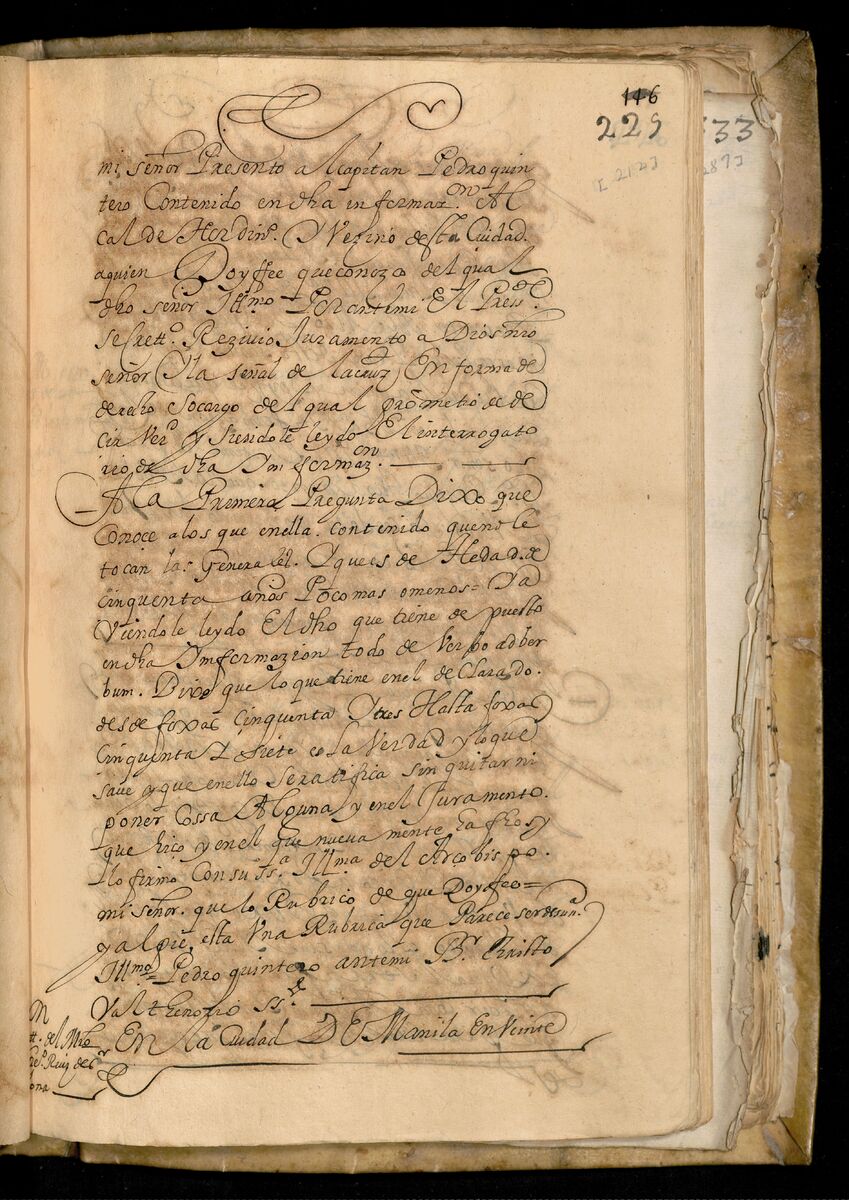 146
229
133
[212]
289]
mi señor Presento al Capitan Pedro quin
tero Contenido en dha informaz.on Al
Calde Hordin.o Y Vezino desta Ciudad
a quien Doy ffee que conozco del qual
dho señor Ill.mo Por ante mi El Press.te
secrett.o Rezivio Juramento a Dios nro
señor Y la señal de la cruz En forma de
derecho so cargo del qual prometio de de
cir Ver.d y siendole leydo El interrogato
rio de dha Ynformaz.on
A la Primera Pregunta Dixo que
Conoce a los que en ella. contenido que no le
tocan las Generales. Y que es de Hedad de
cinquenta años Poco mas o menos = Y a
Viendole leydo El dho que tiene de puesto
en dha Ynformazion todo de Verbo ad ber
bum. Dixo que lo que tiene en el de Clarado.
desde foxas Cinquenta Y tres Hasta foxas
Cinquenta Y siete es La Verdad y lo que
save y que en ello se ratifica sin quitar ni
poner Cossa Alguna y en el Juramento.
que hico y en el que nueva mente ha fho y
lo firmo Con su ss.a Ill.ma del Arcobispo.
mi señor. que lo Rubrico de que Doy feo =
y al pie esta Vna Rubrica que Parece ser de su s.a
Ill.ma = Pedro quintero ante mi B.r
Valthenorio ss.o
En la Ciudad DE Manila En Veinte
del Mro
Ruiz de
ona